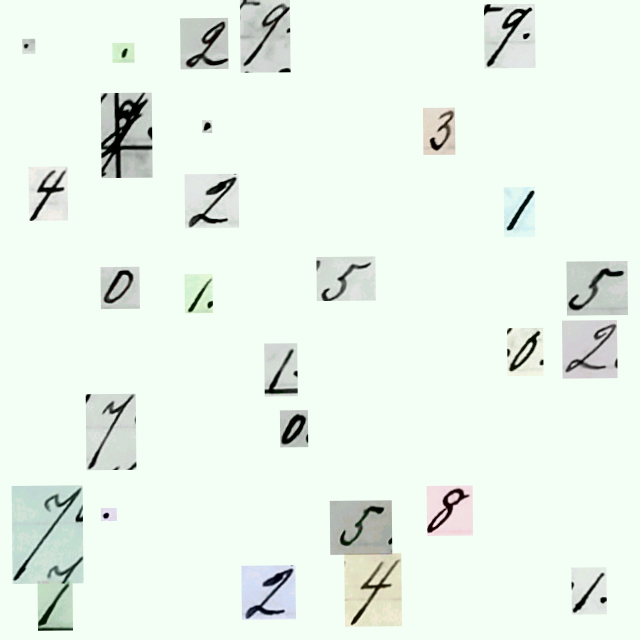 . . 2 9. 9.
. 3
4 2 1
0 1. 5 5
1. 0. 2.
7 0.
7 . 5. 8
1 2 4 1.